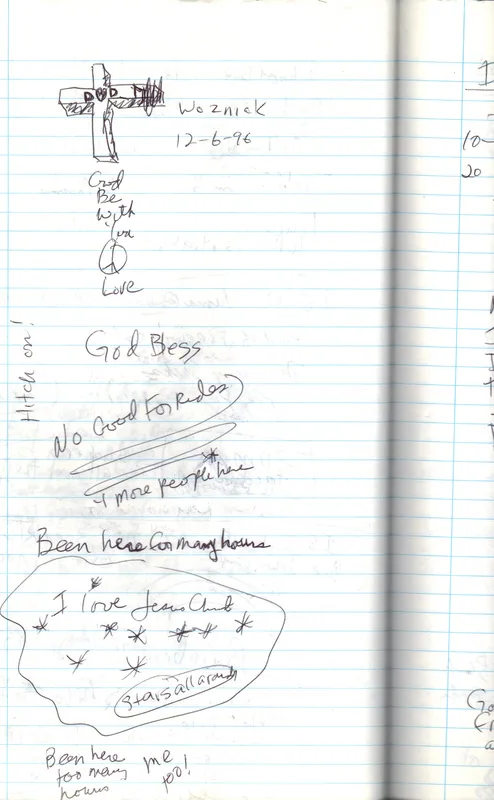 Woznick
12-6-96
God
Be
With
You
Love
Hitch on!
God Bless
No Good For Rides
4 more people here
Been here for many hours
I love Jesus Christ
Stars all around
Been here
too many
hours
me
too!
10-
20
Go